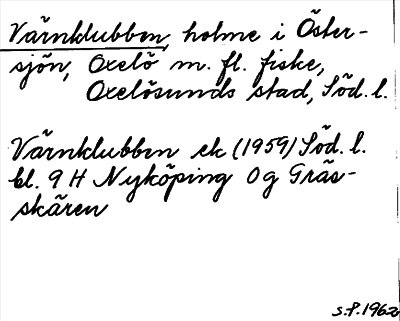 Värnklubben, holme i Öster-
sjön, Oxelö m. fl. fiske,
Oxelösunds stad, Söd. l.
Värnklubben ek (1959) Söd. l.
bl. 9 H Nyköping Og Gräs-
skären
S.P. 1962